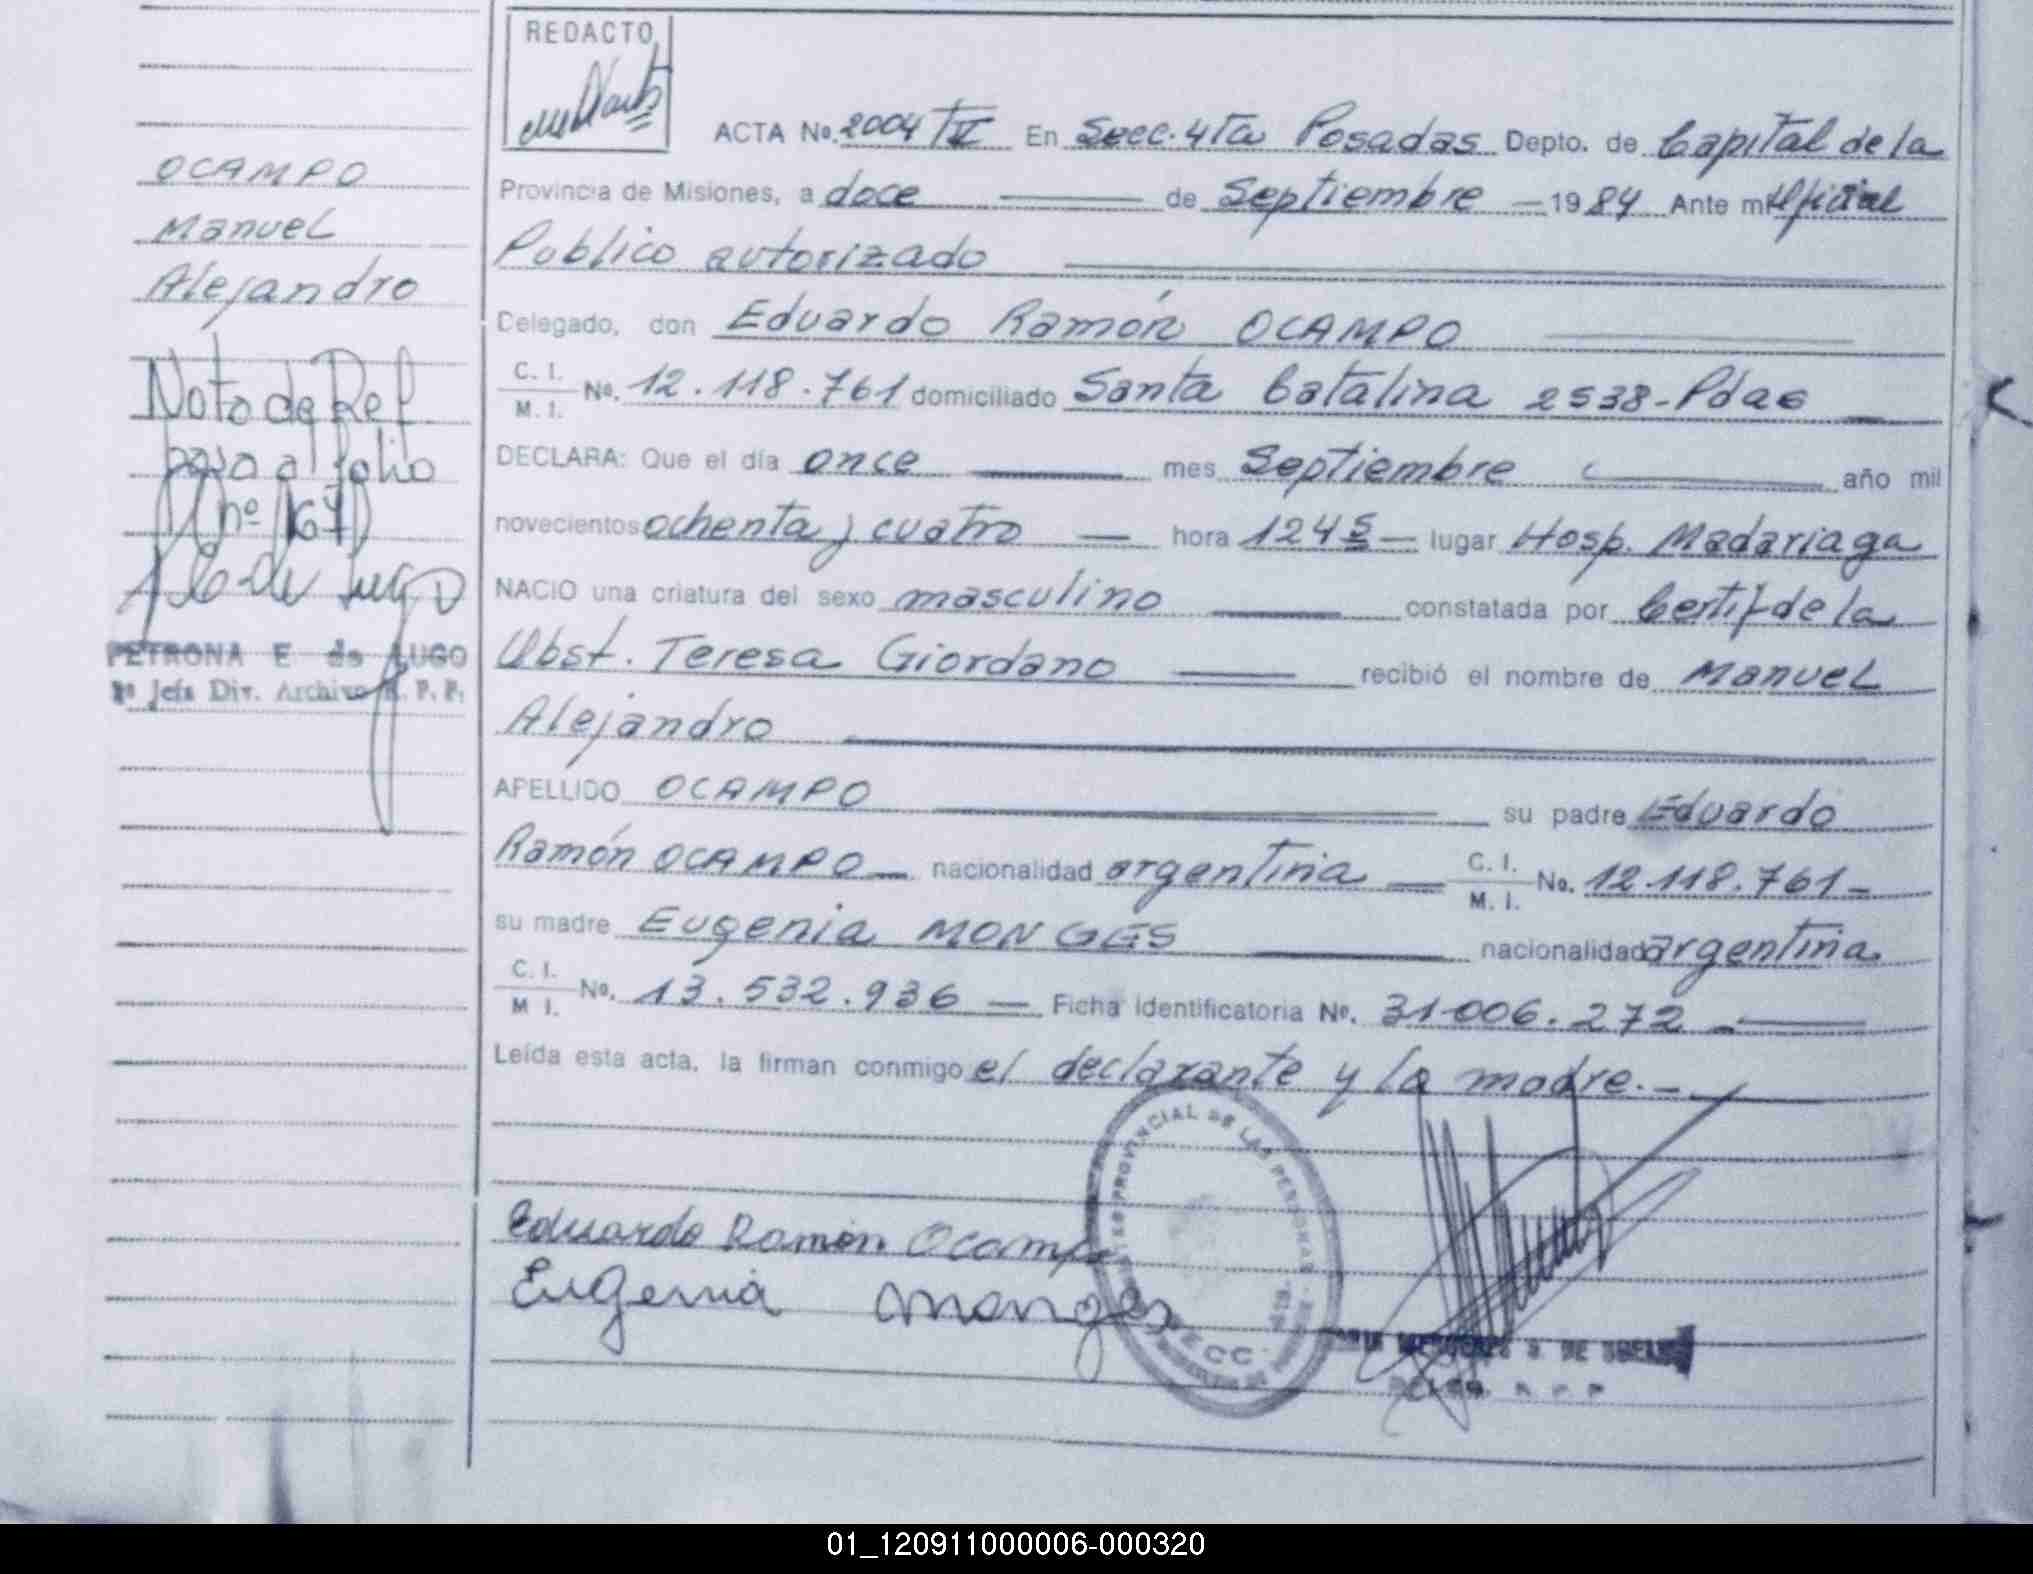 REDACTO
OCAMPO
Manuel
Alejandro
Nota de Ref
paso al folio
nº 167
PETRONA E de LUGO
Jefa Div. Archivo R. P. P.
ACTA No. 2004/ En Secc. 4ta Posadas Depto. de Capital de la
Provincia de Misiones, a doce de Septiembre 1984 Ante mi Oficial
Publico autorizado
Delegado, don Eduardo Ramón OCAMPO
C. I.
M. I. No. 12.118.761 domiciliado Santa Catalina 2538-Pdas
DECLARA: Que el día once mes Septiembre año mil
novecientos ochenta y cuatro hora 1245 lugar Hosp. Madariaga
NACIO una criatura del sexo masculino constatada por Certif de la
Obst. Teresa Giordano recibió el nombre de Manuel
Alejandro
APELLIDO OCAMPO su padre Eduardo
Ramón OCAMPO nacionalidad argentina C. I.
M. I. No. 12.118.761-
su madre Eugenia MONGES nacionalidad argentina
C. I.
M I. No. 13.532.936 Ficha identificatoria No. 31.006.272
Leída esta acta, la firman conmigo el declarante y la madre.-
Eduardo Ramón Ocampo
Eugenia Monges
PROVINCIAL DE LAS PERSONAS
01_120911000006-000320